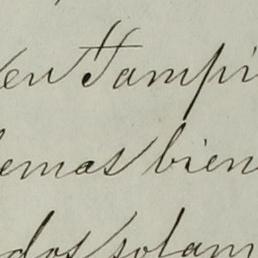 en Tampi
emas bien
dos solam